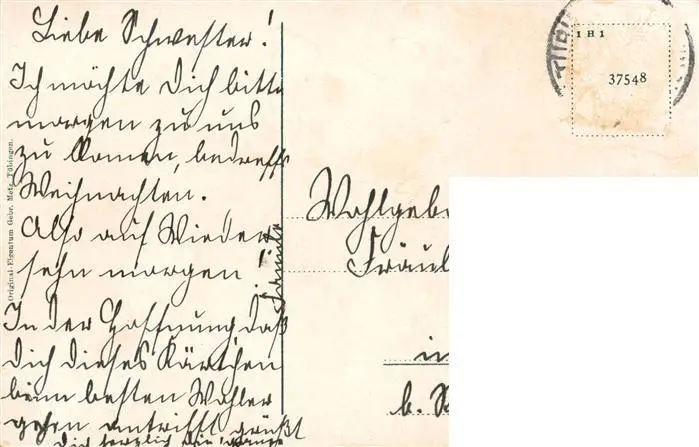 Liebe Schwester!
Ich möchte Dich bitte
morgen zu uns
zu komen, bedreffs
Weihnachten.
Also auf Wieder-
sehn morgen!
In der Hoffnung daß
Dich dieses Kärtchen
beim besten Wohler
gehen antrifft grüßt
Dich herzlich
Original-Eigentum Gebr. Metz, Tübingen.
1 H 1
37548
Wohlgebo
Fräul
in
b. S